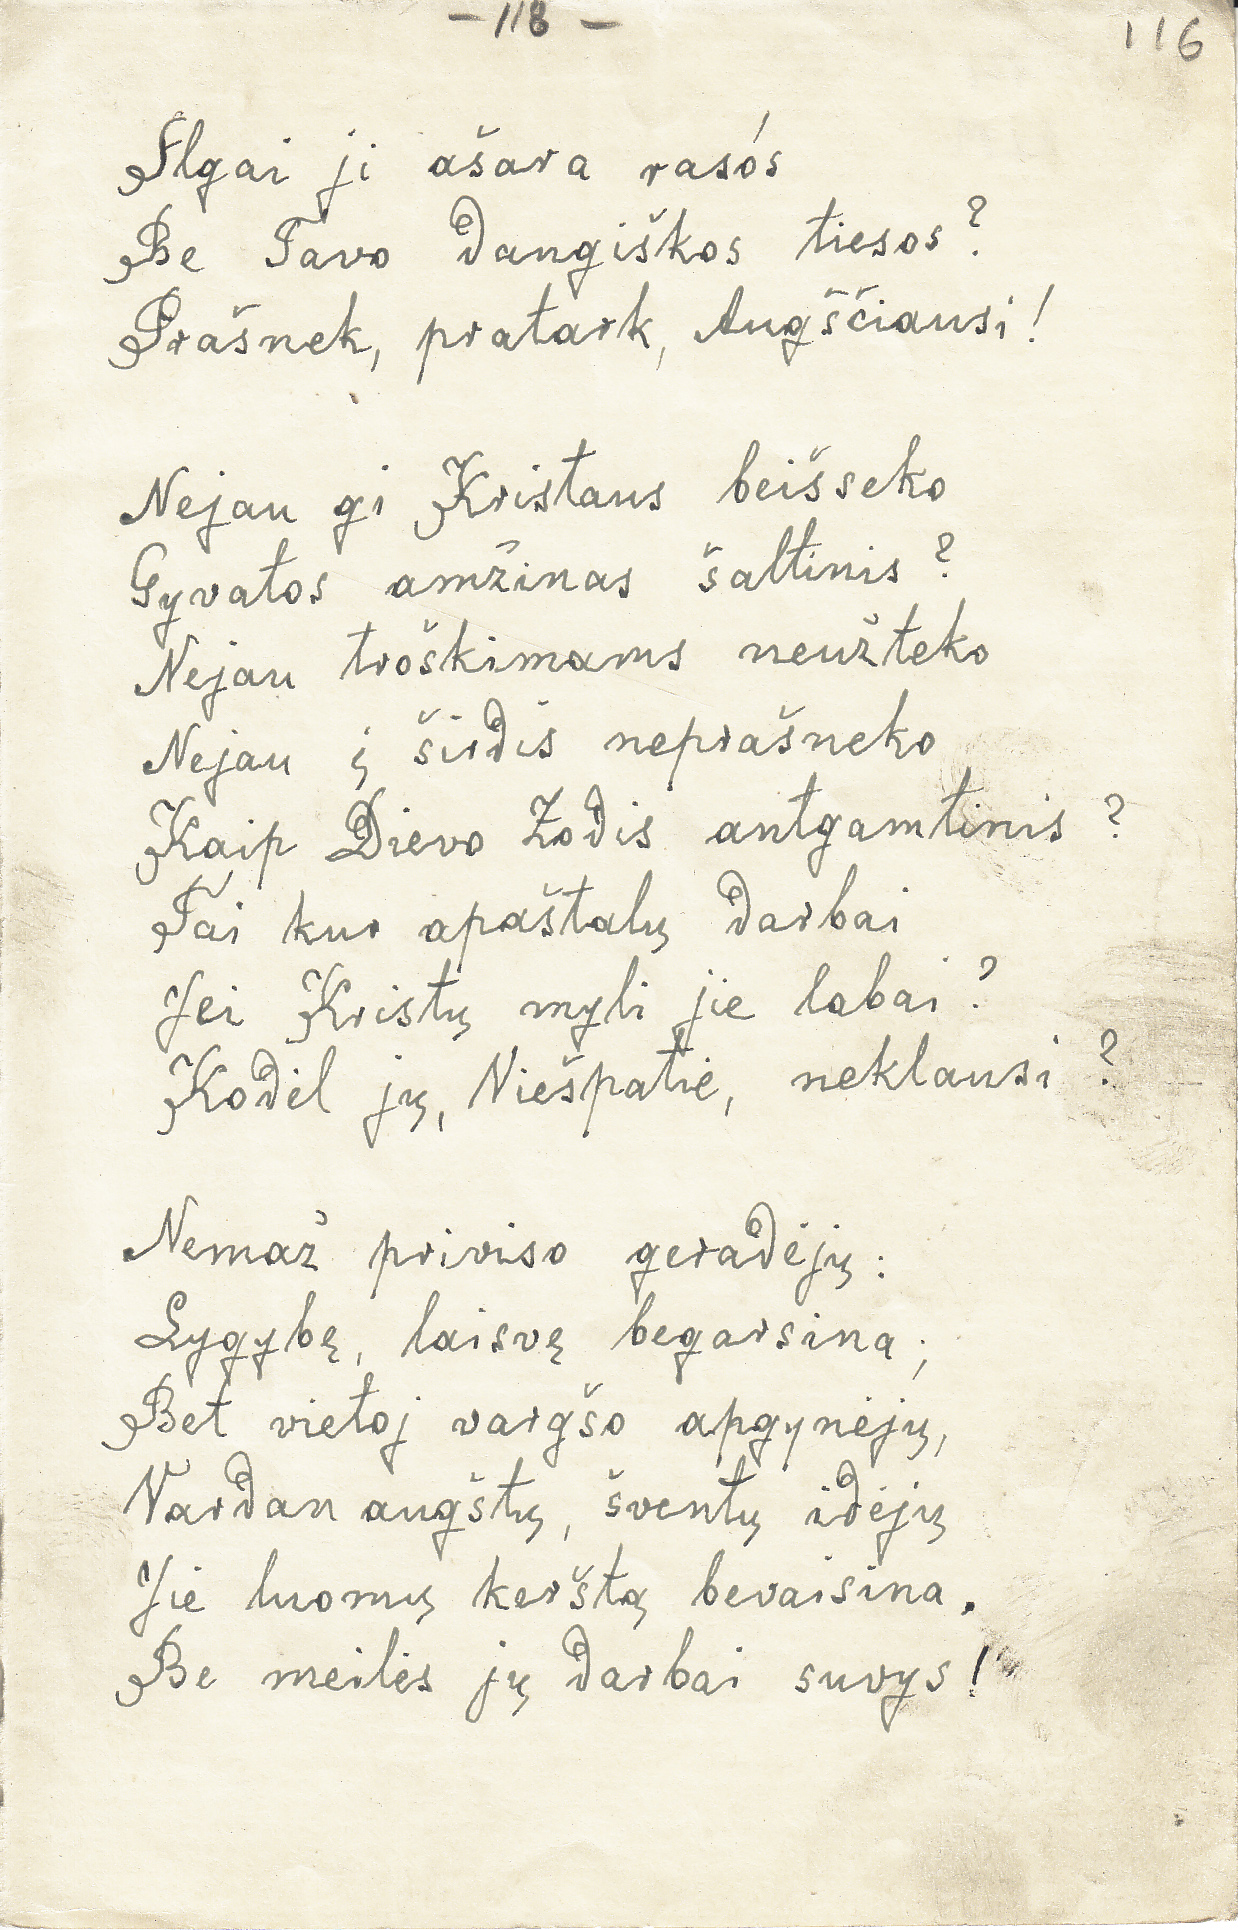 – 118 –
116
Ilgai ji ašara rasós
Be Tavo dangiškos tiesos?
Prašnek, pratark, Augščiausi!
Nejau gi Kristaus beišseko
Gyvatos amžinas šaltinis?
Nejau troškimams neužteko
Nejau į širdis neprašneko
Kaip Dievo Žodis antgamtinis?
Tai kur apaštalų darbai
Jei Kristų myli jie labai?
Kodėl jų, Viešpatie, neklausi?
Nemaž priviso geradėjų:
Lygybę, laisvę begarsina;
Bet vietoj vargšo apgynėjų,
Vardan augštų, šventų idėjų
Jie luomų kerštą bevaisina.
Be meilės jų darbai suvys!